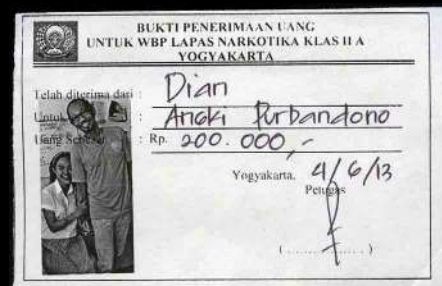 BUKTI PENERIMAAN UANG
UNTUK WBP LAPAS NARKOTIKA KLAS II A
YOGYAKARTA
Telah diterima dari : Dian
Untuk : Angki Purbandono
Uang Sebesar : Rp. 200.000,-
Yogyakarta, 4/6/13
Petugas
(..............)